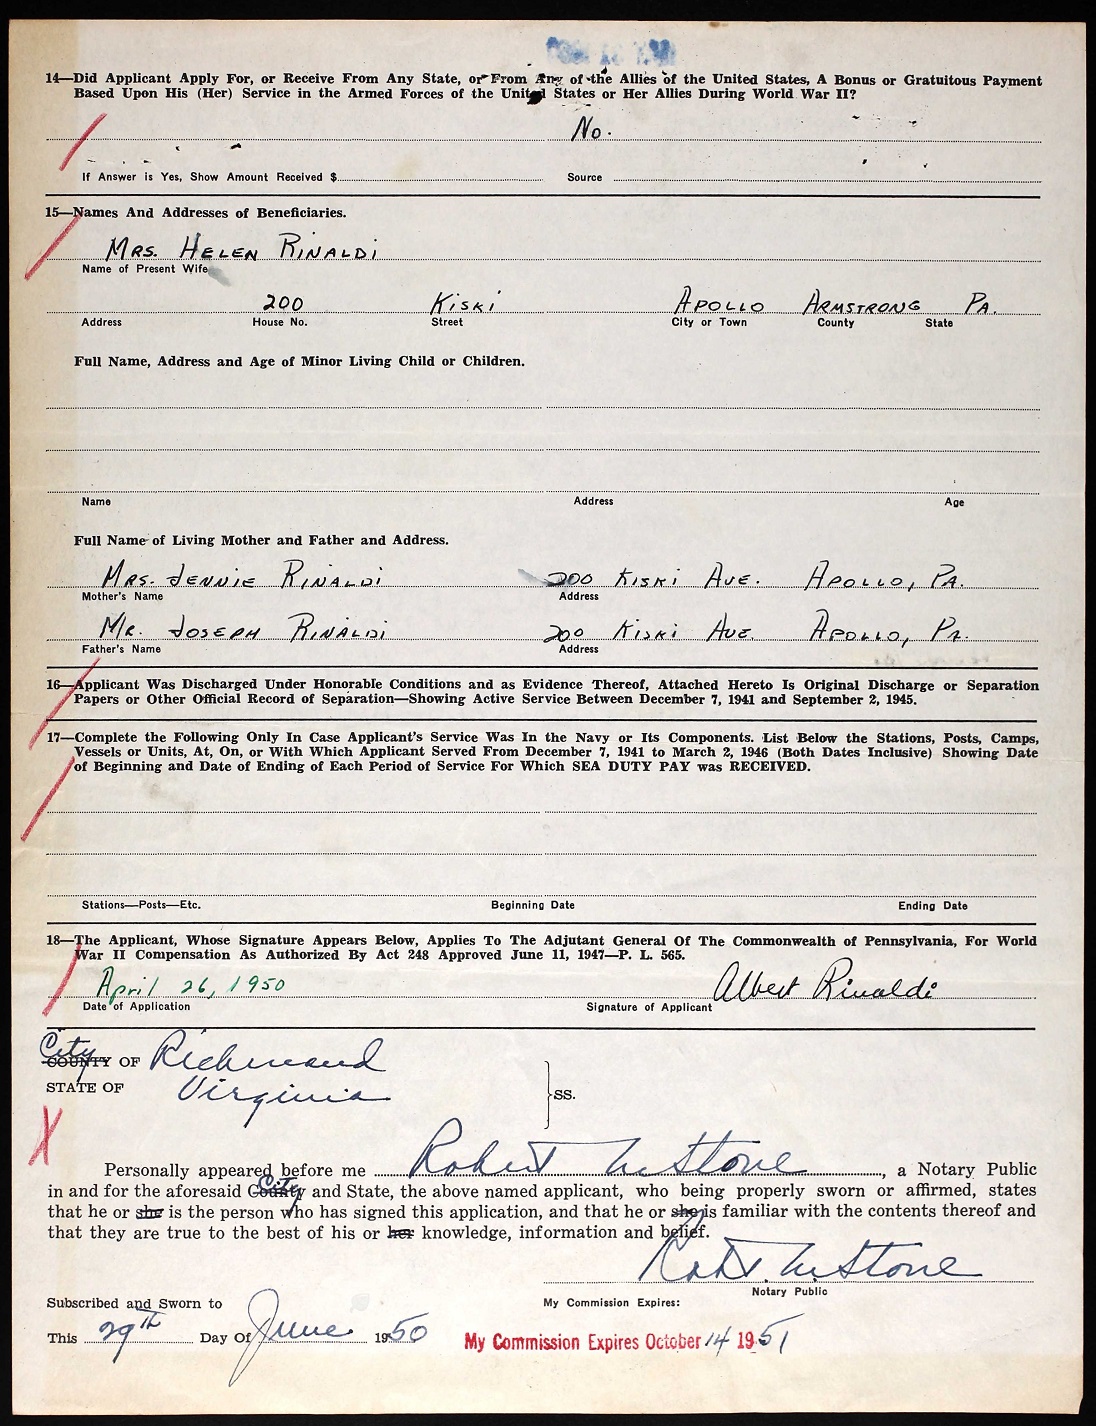 14—Did Applicant Apply For, or Receive From Any State, or From Any of the Allies of the United States, A Bonus or Gratuitous Payment
Based Upon His (Her) Service in the Armed Forces of the United States or Her Allies During World War II?
No.
If Answer is Yes, Show Amount Received $ Source
15—Names And Addresses of Beneficiaries.
Mrs. Helen Rinaldi
Name of Present Wife
200 Kiski Apollo Armstrong Pa.
Address House No. Street City or Town County State
Full Name, Address and Age of Minor Living Child or Children.
Name Address Age
Full Name of Living Mother and Father and Address.
Mrs. Jennie Rinaldi 200 Kiski Ave. Apollo, Pa.
Mother's Name Address
Mr. Joseph Rinaldi 200 Kiski Ave. Apollo, Pa.
Father's Name Address
16—Applicant Was Discharged Under Honorable Conditions and as Evidence Thereof, Attached Hereto Is Original Discharge or Separation
Papers or Other Official Record of Separation—Showing Active Service Between December 7, 1941 and September 2, 1945.
17—Complete the Following Only In Case Applicant's Service Was In the Navy or Its Components. List Below the Stations, Posts, Camps,
Vessels or Units, At, On, or With Which Applicant Served From December 7, 1941 to March 2, 1946 (Both Dates Inclusive) Showing Date
of Beginning and Date of Ending of Each Period of Service For Which SEA DUTY PAY was RECEIVED.
Stations—Posts—Etc. Beginning Date Ending Date
18—The Applicant, Whose Signature Appears Below, Applies To The Adjutant General Of The Commonwealth of Pennsylvania, For World
War II Compensation As Authorized By Act 248 Approved June 11, 1947—P. L. 565.
April 26, 1950 Albert Rinaldi
Date of Application Signature of Applicant
City
COUNTY OF Richmond
STATE OF Virginia SS.
Personally appeared before me Robert M Stone, a Notary Public
in and for the aforesaid County City and State, the above named applicant, who being properly sworn or affirmed, states
that he or she is the person who has signed this application, and that he or she is familiar with the contents thereof and
that they are true to the best of his or her knowledge, information and belief.
Robt. M. Stone
Notary Public
Subscribed and Sworn to My Commission Expires:
This 29th Day Of June 1950 My Commission Expires October 14 1951